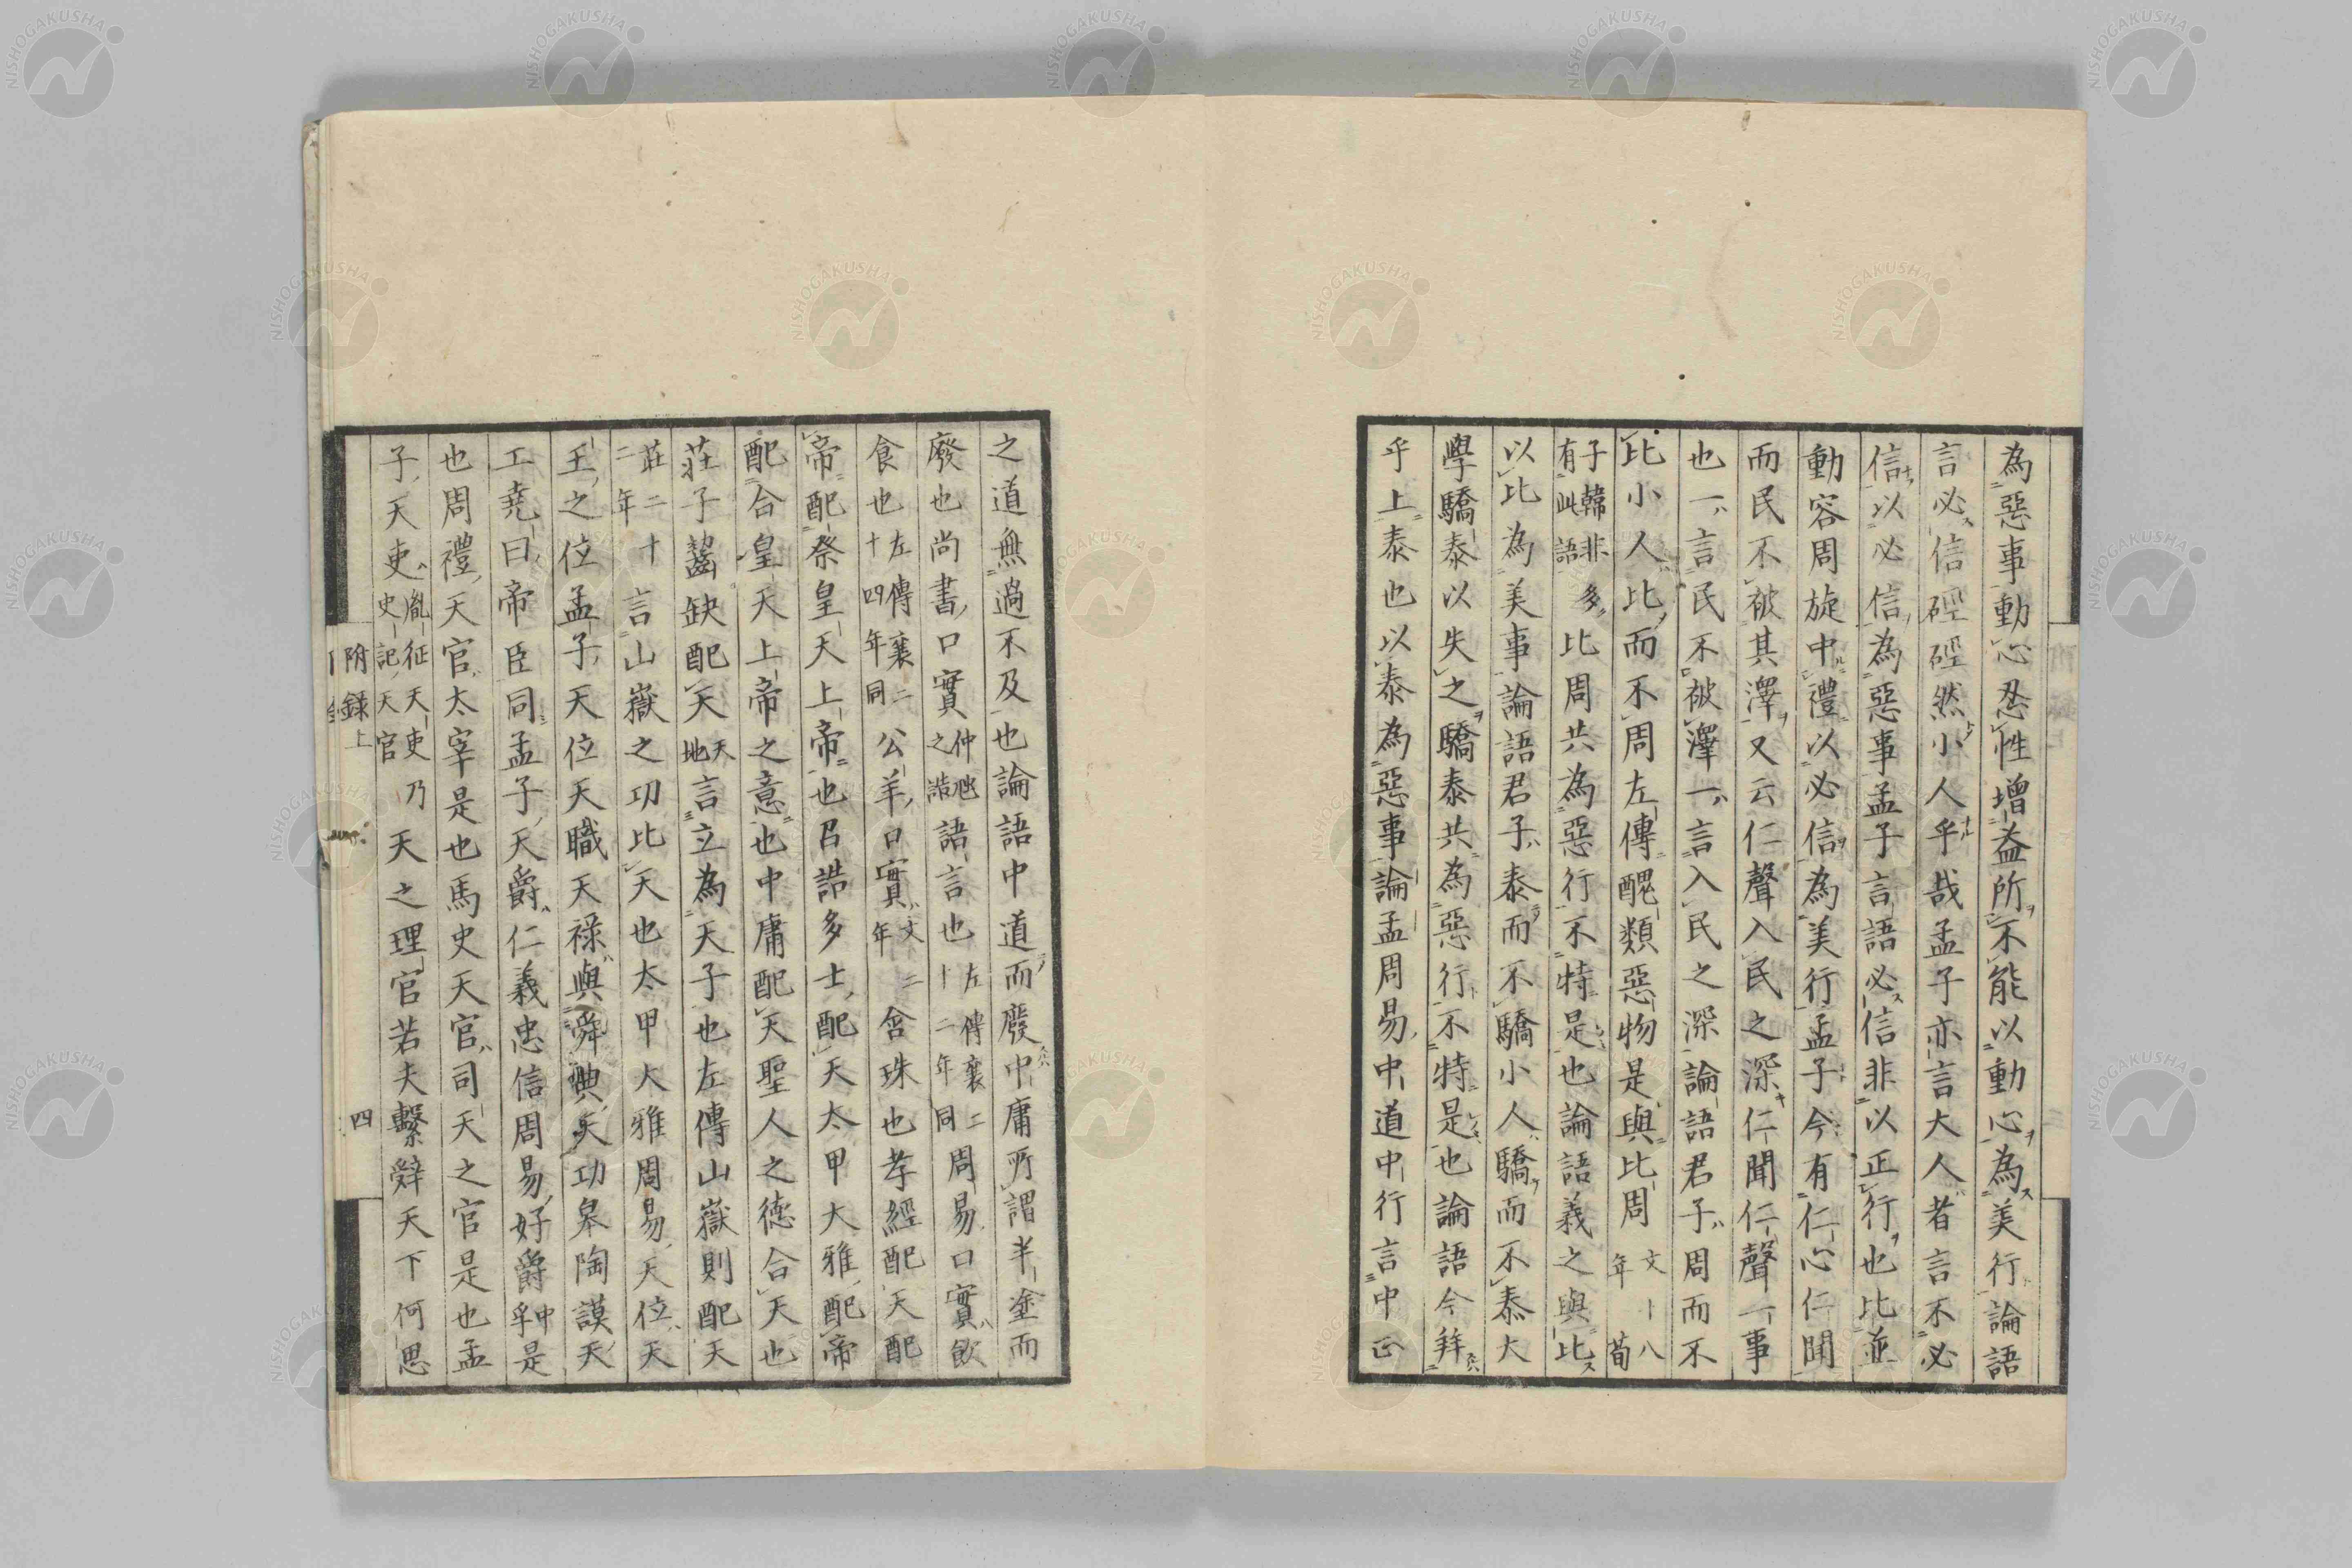 為惡事動心忍性增益所不能以動心為美行論語
言必信硜硜然小人乎哉孟子亦言大人者言不必
信以必信為惡事孟子言語必信非以正行也比並
動容周旋中禮以必信為美行孟子今有仁心仁聞
而民不被其澤又云仁聲入民之深仁聞仁聲一事
也一言民不被澤一言入民之深論語君子周而不
比小人比而不周左傳醜類惡物是與比周文十八年荀
子韓非多有此語比周共為惡行不特是也論語義之與比
以比為美事論語君子泰而不驕小人驕而不泰大
學驕泰以失之驕泰共為惡行不特是也論語今拜
乎上泰也以泰為惡事論孟周易中道中行言中正
之道無過不及也論語中道而廢中庸所謂半塗而
廢也尚書口實仲虺之誥語言也左傳襄二十二年同周易口實飲
食也左傳襄二十四年同公羊口實文二年含珠也孝經配天配
帝配祭皇天上帝也召誥多士配天太甲大雅配帝
配合皇天上帝之意也中庸配天聖人之德合天也
莊子齧缺配天天地言立為天子也左傳山嶽則配天
莊二十二年言山嶽之功比天也太甲大雅周易天位天
王之位孟子天位天職天祿與舜典天功皋陶謨天
工堯曰帝臣同孟子天爵仁義忠信周易好爵中孚是
也周禮天官太宰是也馬史天官司天之官是也孟
子天吏胤征天吏史記天官乃天之理官若夫繫辭天下何思
附錄上
四